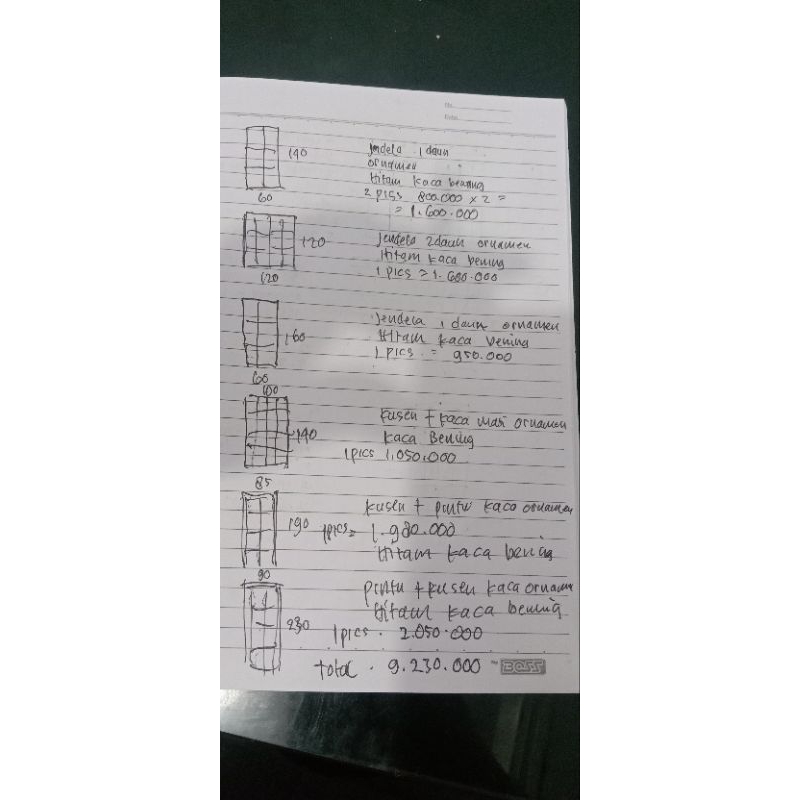 No
Date
140
60
jendela 1 daun
ornamen
Hitam kaca bening
2 pics 800.000 x 2 =
= 1.600.000
120
120
jendela 2daun ornamen
Hitam kaca bening
1 pics = 1.600.000
160
60
jendela 1 daun ornamen
Hitam kaca bening
1 pics = 950.000
190
kusen + kaca mati ornamen
kaca Bening
1pics 1.050.000
85
190
kusen + pintu kaca ornamen
1pics = 1.980.000
Hitam kaca bening
90
230
pintu + kusen kaca ornamen
Hitam kaca bening
1pics . 2.050.000
total . 9.230.000
BOSS